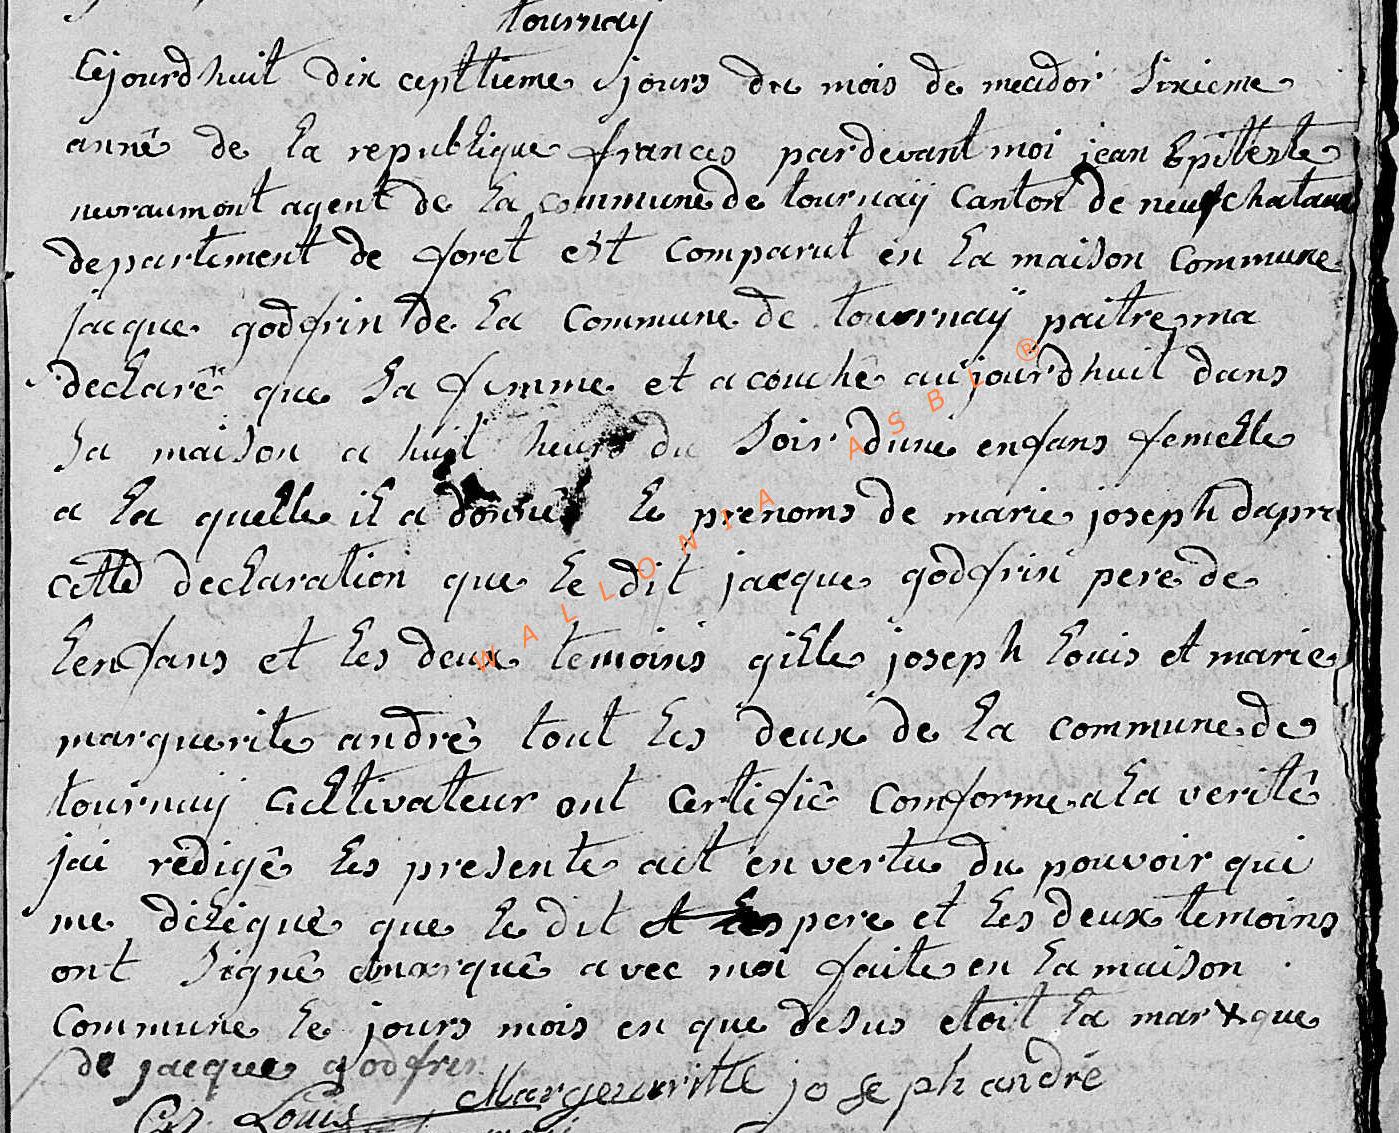 tournay
Cejourdhuit dix cepttieme jours du mois de mecidor Sixieme
anné de la republique frances pardevant moi jean Bpiteste
nuvraumont agent de la commune de tournaÿ Canton de neufchataux
departement de foret est Comparut en la maison Commune
jacque godfrin de la Commune de tournaÿ paitre ma
declaré que Sa femme et acouché aujourdhuit dans
Sa maison a huit heurs du Soir dune enfans femelle
a la quelle il a donné le prenoms de marie joseph dapre
cette declaration que le dit jacque godfrin pere de
lenfans et les deux temoins gille joseph louis et marie
marguerite andrê tout les deux de la commune de
tournaij cultivateur ont certifiê Comforme a la veritê
jai redigê les presente act en vertu du pouvoir qui
me diligue que le dit pere et les deux temoins
ont Signê marquê avec moi faite en la maison
Commune le jours mois en que desus etoit la mar x que
de jacque godfrin
Louis Margeuritte joseph andré
WALLONIA ASBL ®